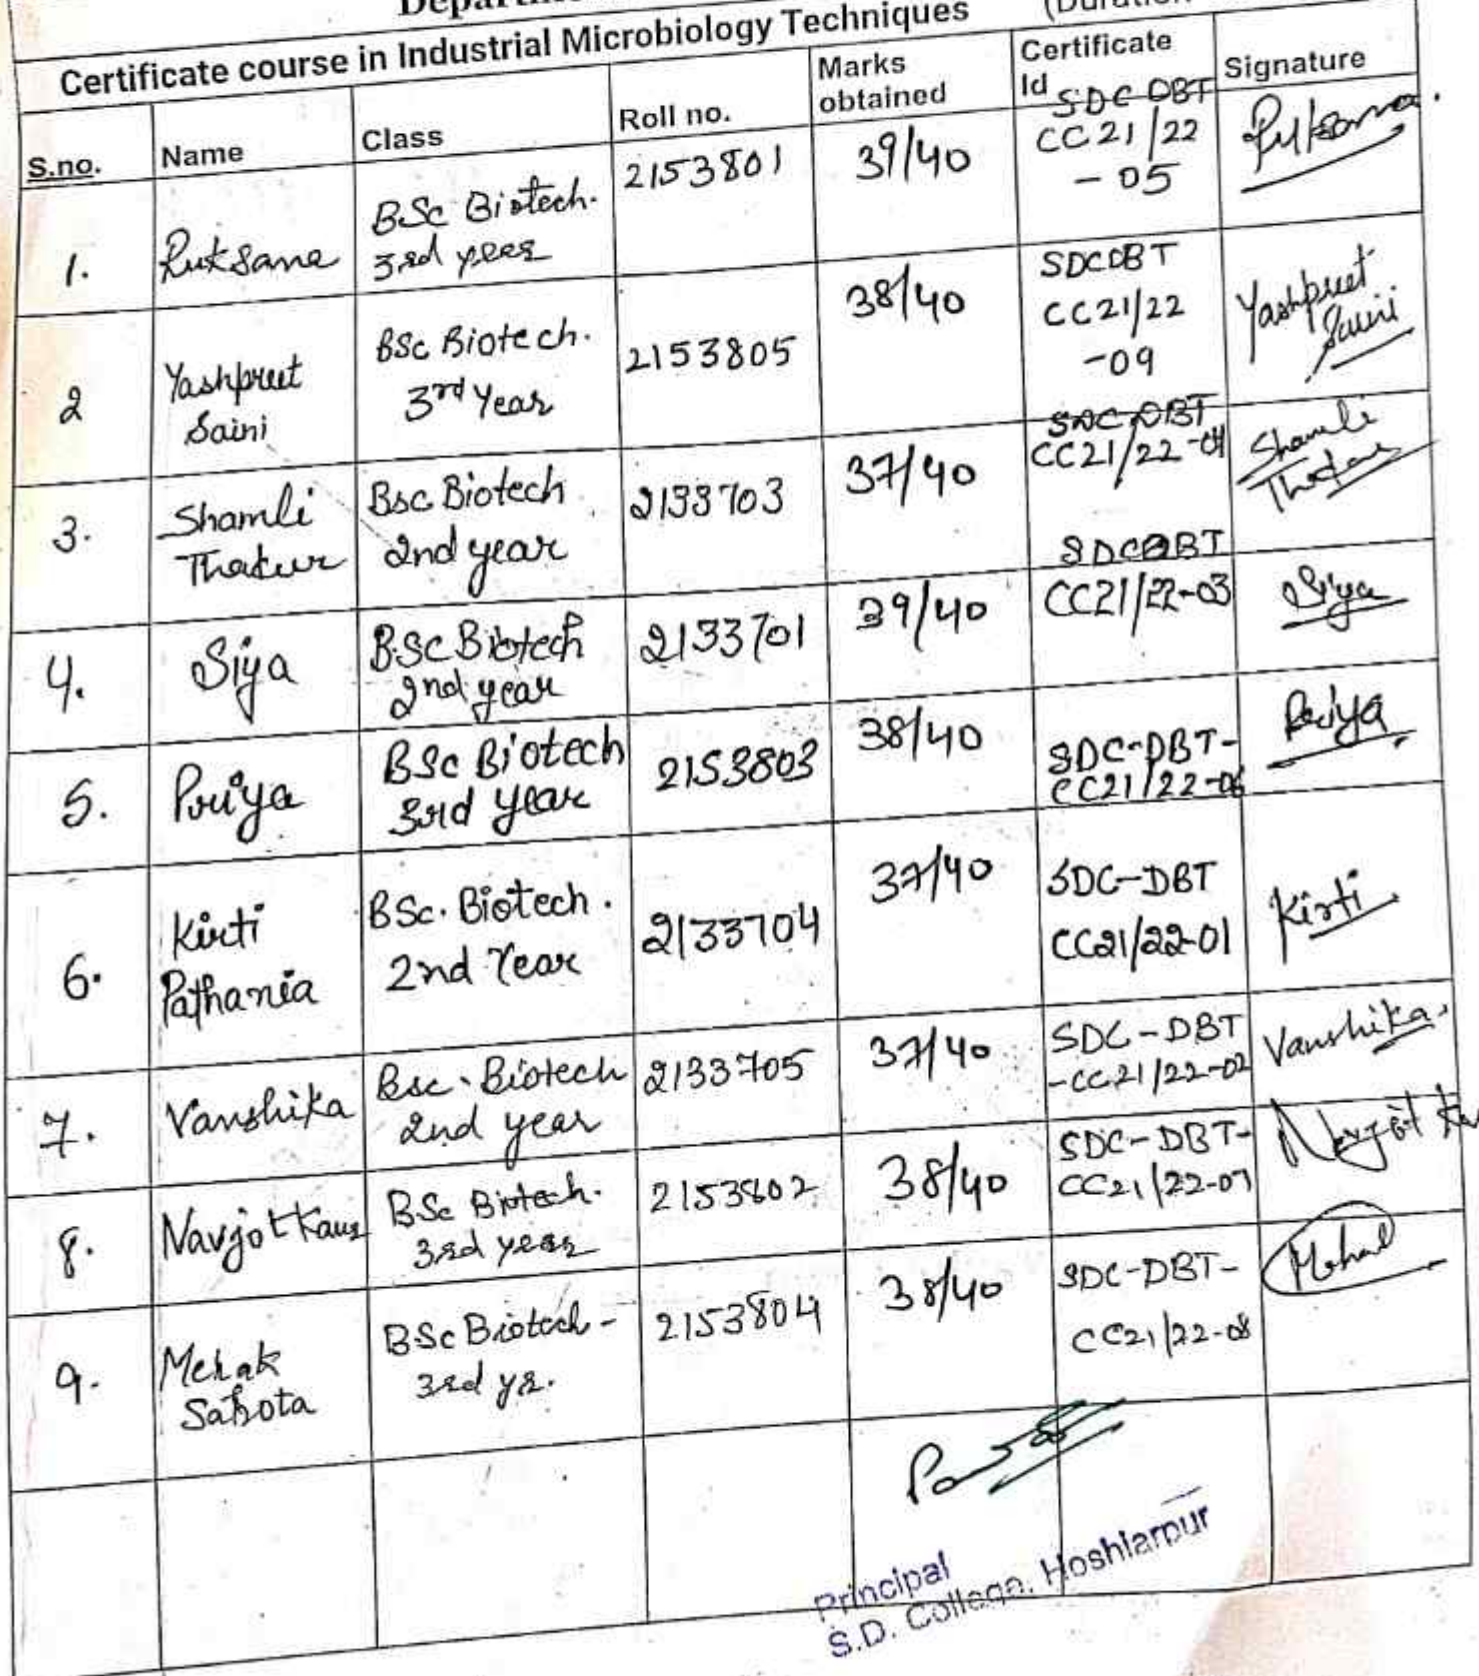 Certificate course in Industrial Microbiology Techniques
S.no. Name Class Roll no. Marks obtained Certificate Id Signature
1. Ruksana BSc Biotech. 3rd year 2153801 39/40 SDC DBT CC21/22 -05 Ruksana.
2 Yashpreet Saini BSc Biotech. 3rd Year 2153805 38/40 SDCDBT CC21/22 -09 Yashpreet Saini
3. Shamli Thakur Bsc Biotech 2nd year 2133703 37/40 SDC DBT CC21/22-04 Shamli Thakur
4. Siya B.SC Biotech 2nd year 2133701 39/40 SDCDBT CC21/22-03 Siya
5. Priya BSc Biotech 3rd year 2153803 38/40 SDC-DBT- CC21/22-06 Priya
6. Kirti Pathania BSc. Biotech. 2nd Year 2133704 37/40 SDC-DBT CC21/22-01 Kirti
7. Vanshika Bsc. Biotech 2nd year 2133705 37/40 SDC-DBT -CC21/22-02 Vanshika.
8. Navjot Kaur BSc Biotech. 3rd year 2153802 38/40 SDC-DBT- CC21/22-07 Navjot
9. Mehak Sahota BSc Biotech- 3rd yr. 2153804 38/40 SDC-DBT- CC21/22-08 Mehak
Principal
S.D. College, Hoshiarpur